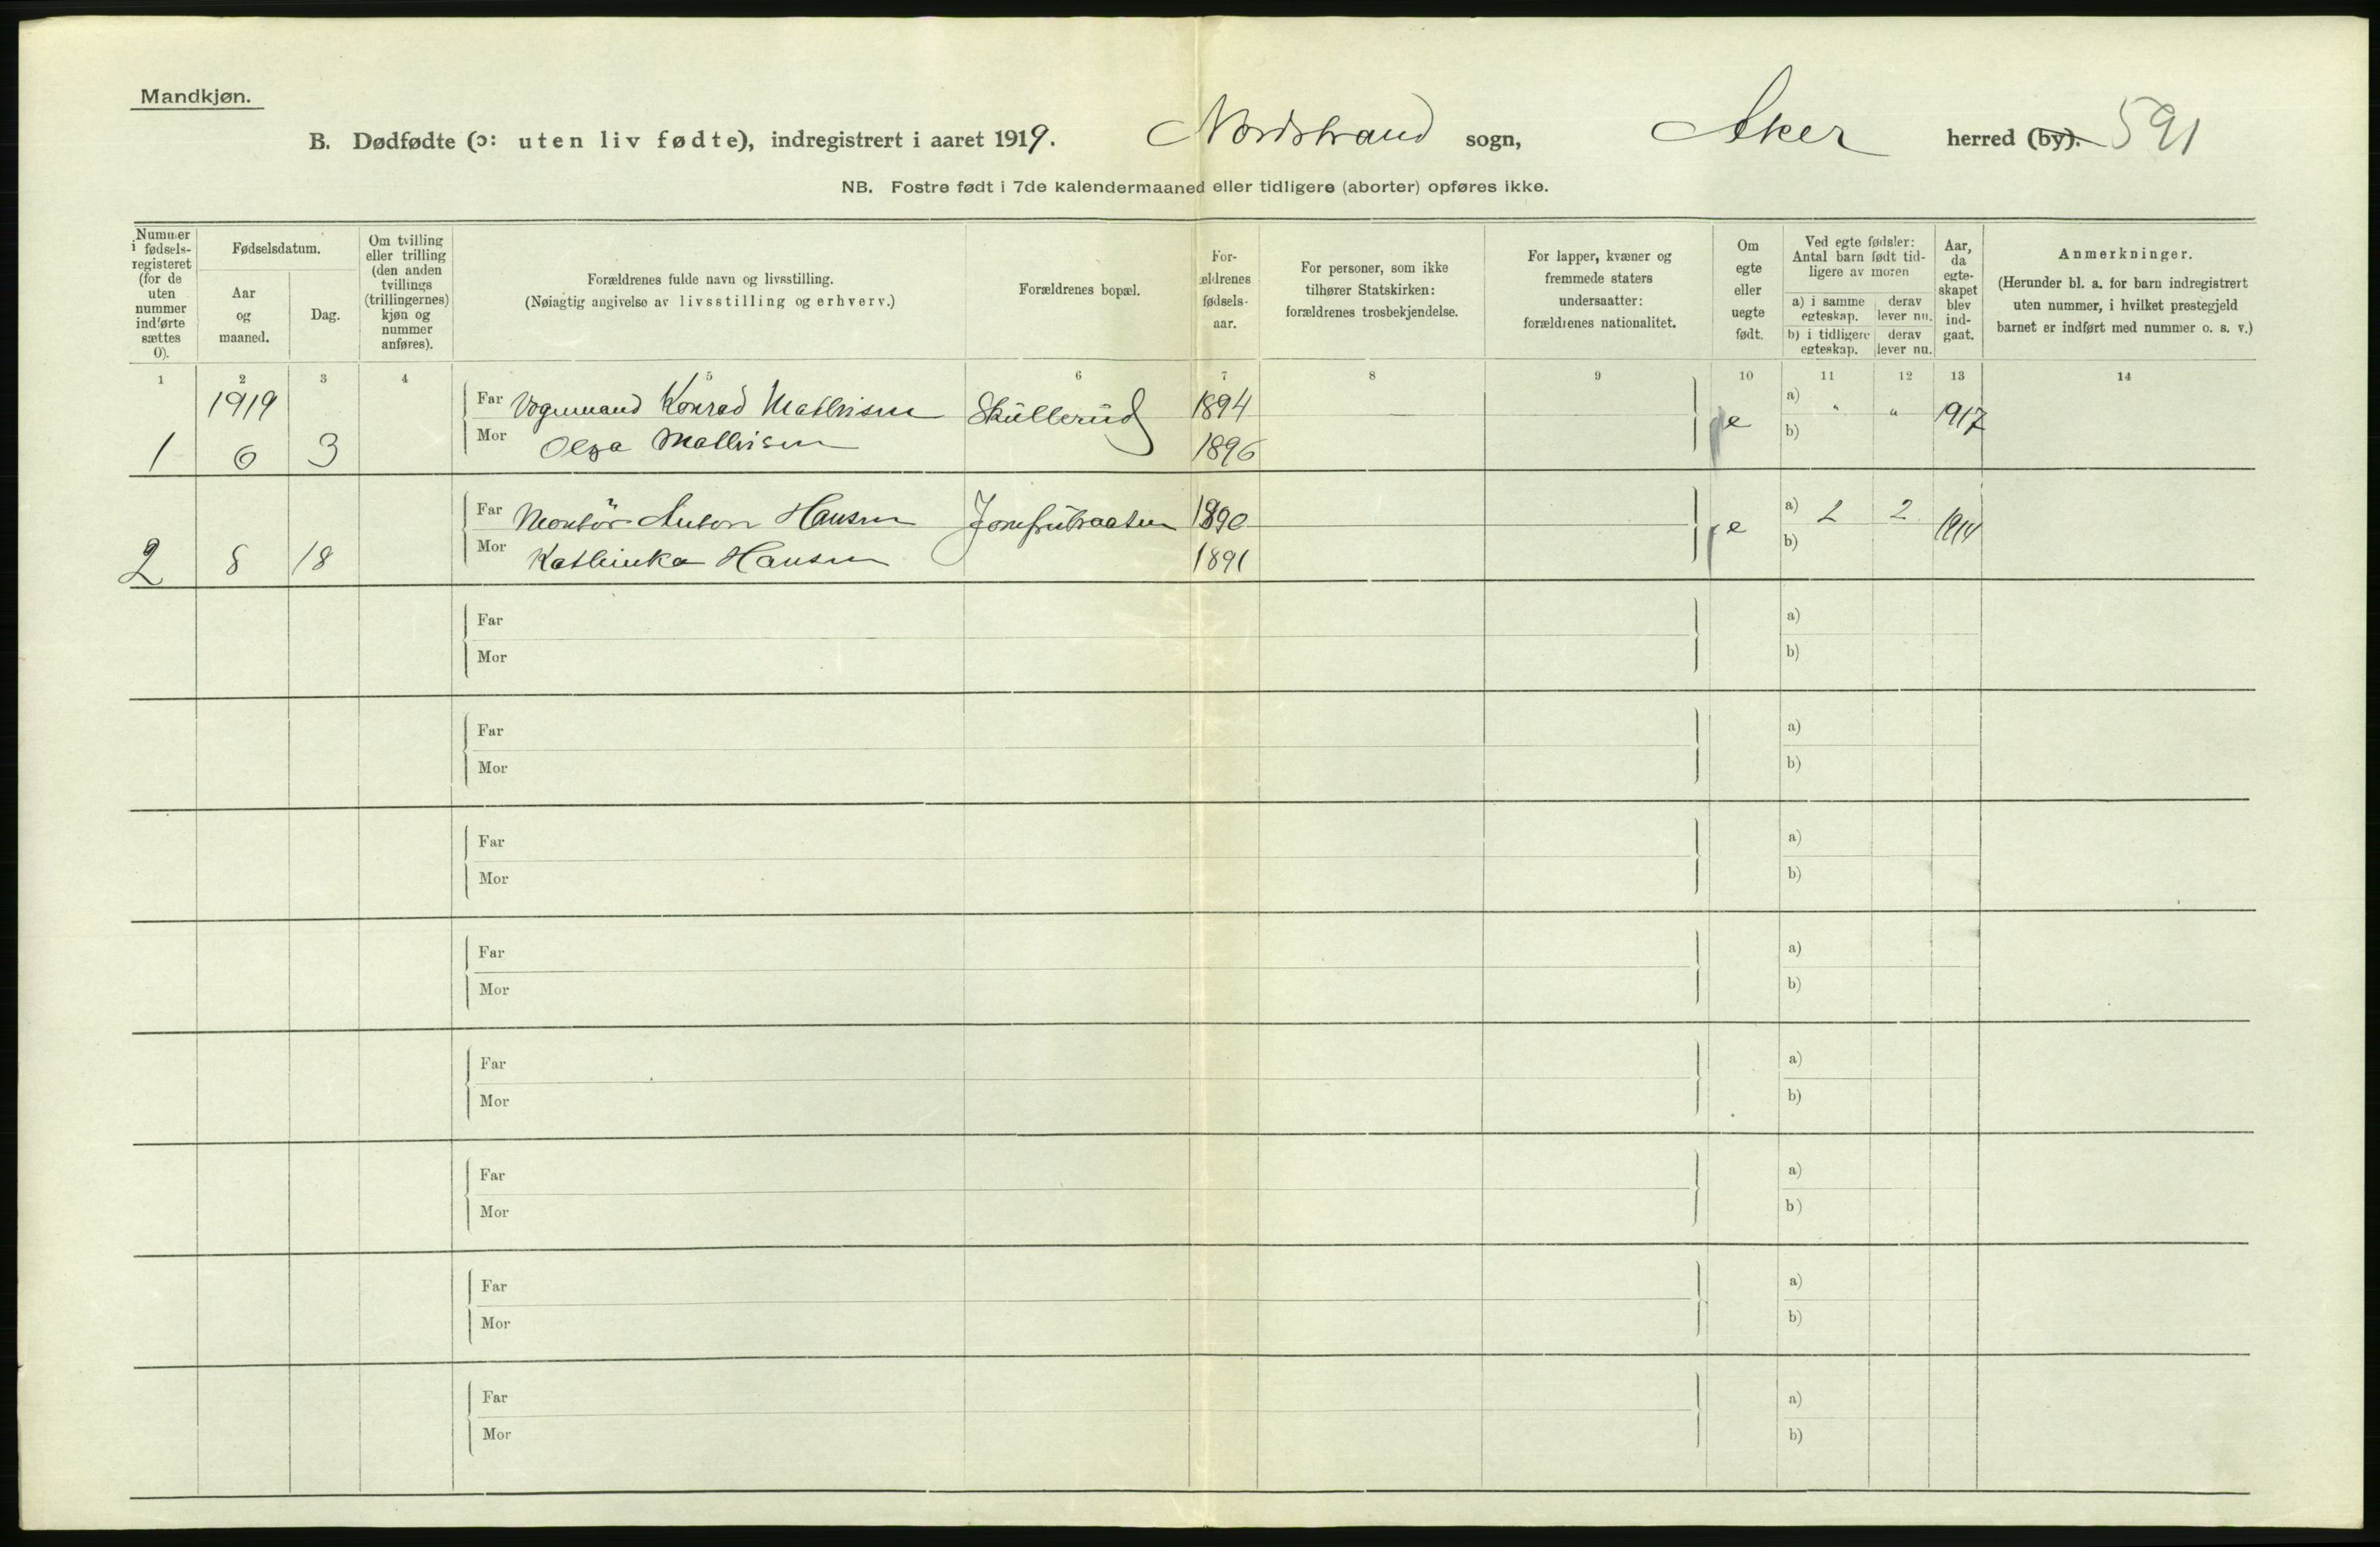 Mandkjøn.
B. Dødfødte (ɔ: uten liv fødte), indregistrert i aaret 1919. Nordstrand sogn, Aker herred (by). 591
NB. Fostre født i 7de kalendermaaned eller tidligere (aborter) opføres ikke.
Nummer i fødsels-registeret (for de uten nummer indførte sættes 0).
Fødselsdatum.
Aar og maaned.
Dag.
Om tvilling eller trilling (den anden tvillings (trillingernes) kjøn og nummer anføres).
Forældrenes fulde navn og livsstilling.
(Nøiagtig angivelse av livsstilling og erhverv.)
Forældrenes bopæl.
For-ældrenes fødsels-aar.
For personer, som ikke tilhører Statskirken: forældrenes trosbekjendelse.
For lapper, kvæner og fremmede staters undersaatter: forældrenes nationalitet.
Om egte eller uegte født.
Ved egte fødsler: Antal barn født tid-ligere av moren
a) i samme egteskap. derav lever nu.
b) i tidligere egteskap. derav lever nu.
Aar, da egte-skapet blev ind-gaat.
Anmerkninger.
(Herunder bl. a. for barn indregistrert uten nummer, i hvilket prestegjeld barnet er indført med nummer o. s. v.)
1 2 3 4 5 6 7 8 9 10 11 12 13 14
1919 Far Vognmand Konrad Mathisen Skullerud 1894 — e a) " " 1917
1 6 3 Mor Olga Mathisen 1896 b)
Far Montör Anton Hansen Jomfrubraaten 1890 e a) 2 2 1914
2 8 18 Mor Kathinka Hansen 1891 b)
Far a)
Mor b)
Far a)
Mor b)
Far a)
Mor b)
Far a)
Mor b)
Far a)
Mor b)
Far a)
Mor b)
Far a)
Mor b)
Far a)
Mor b)